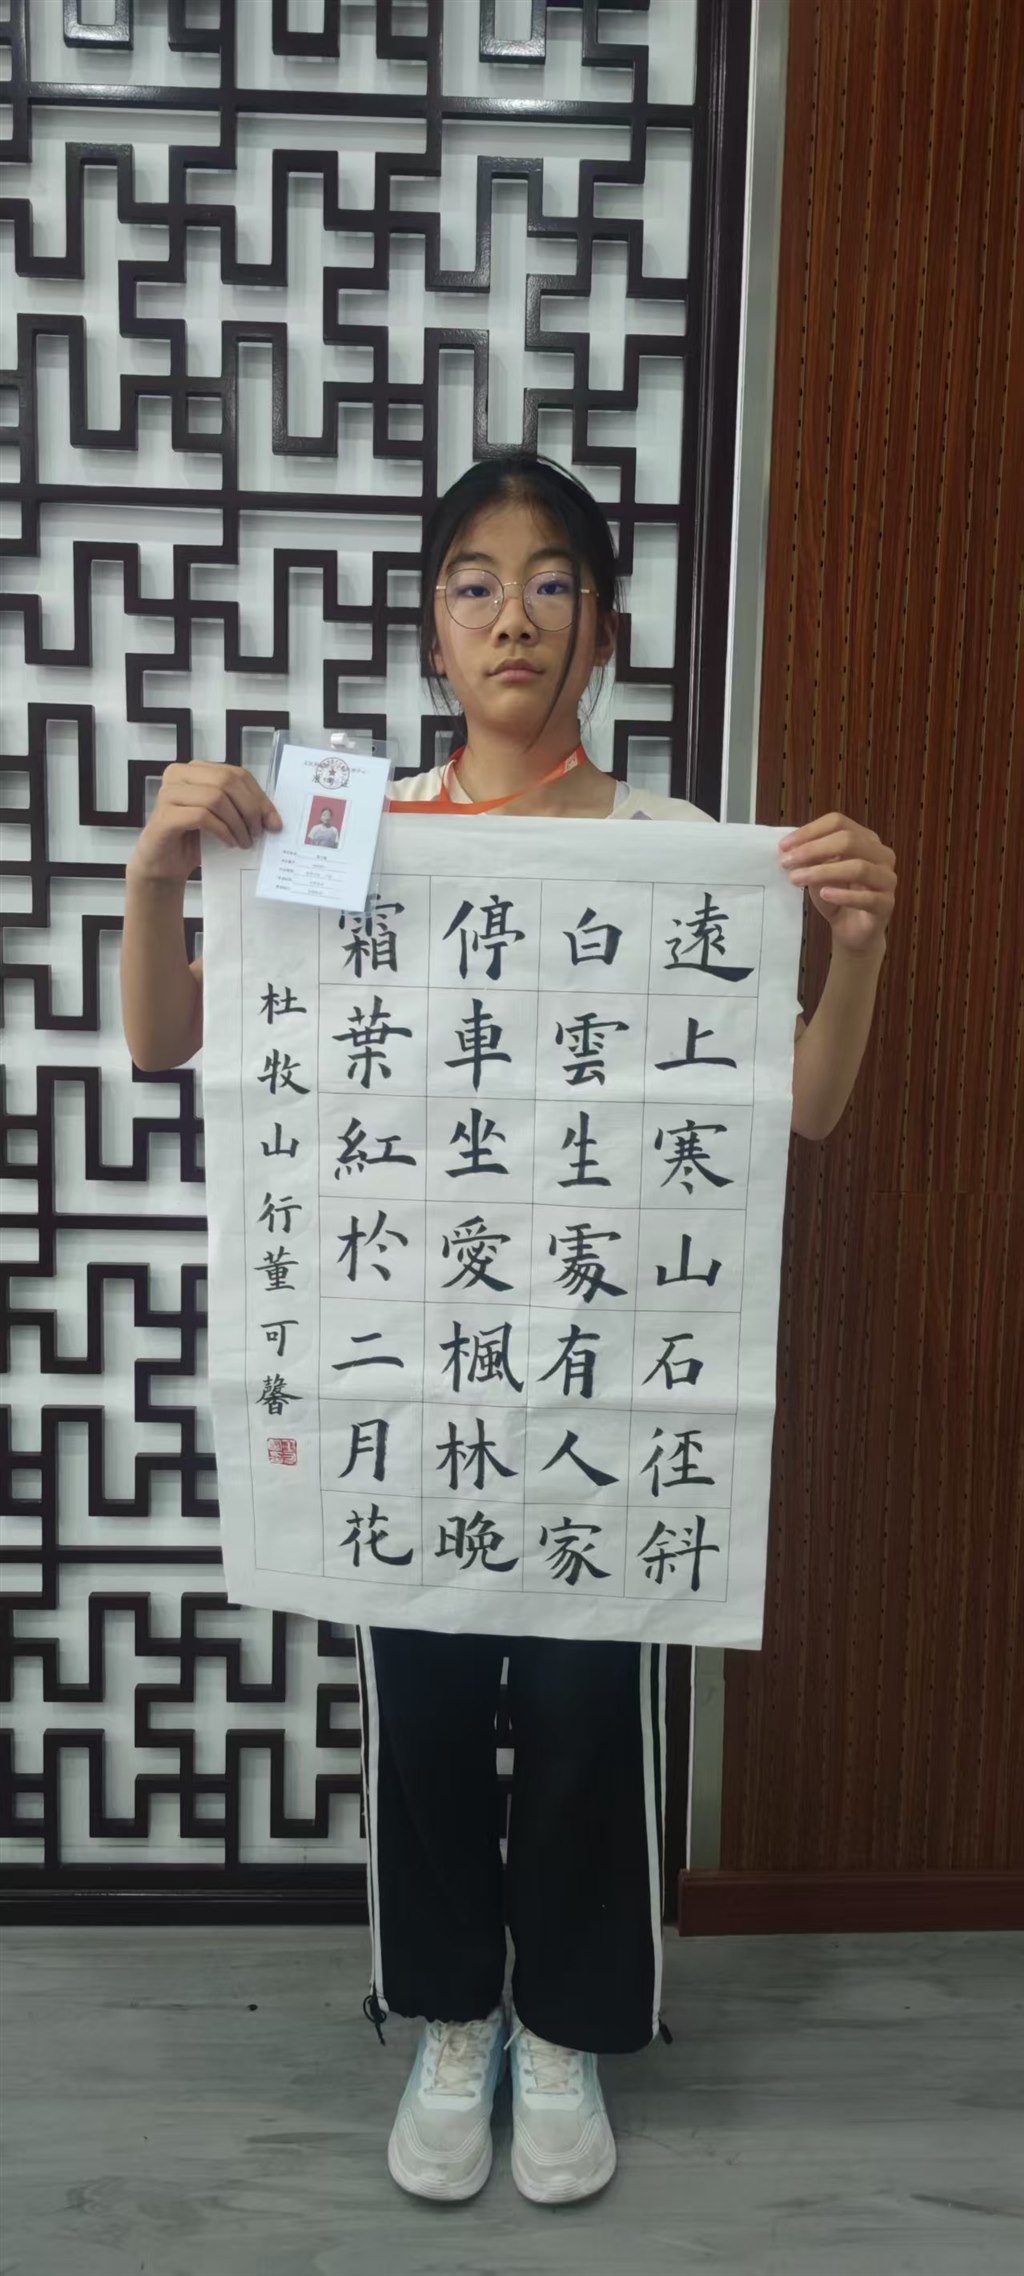 遠上寒山石徑斜
白雲生處有人家
停車坐愛楓林晚
霜葉紅於二月花
杜牧山行董可馨